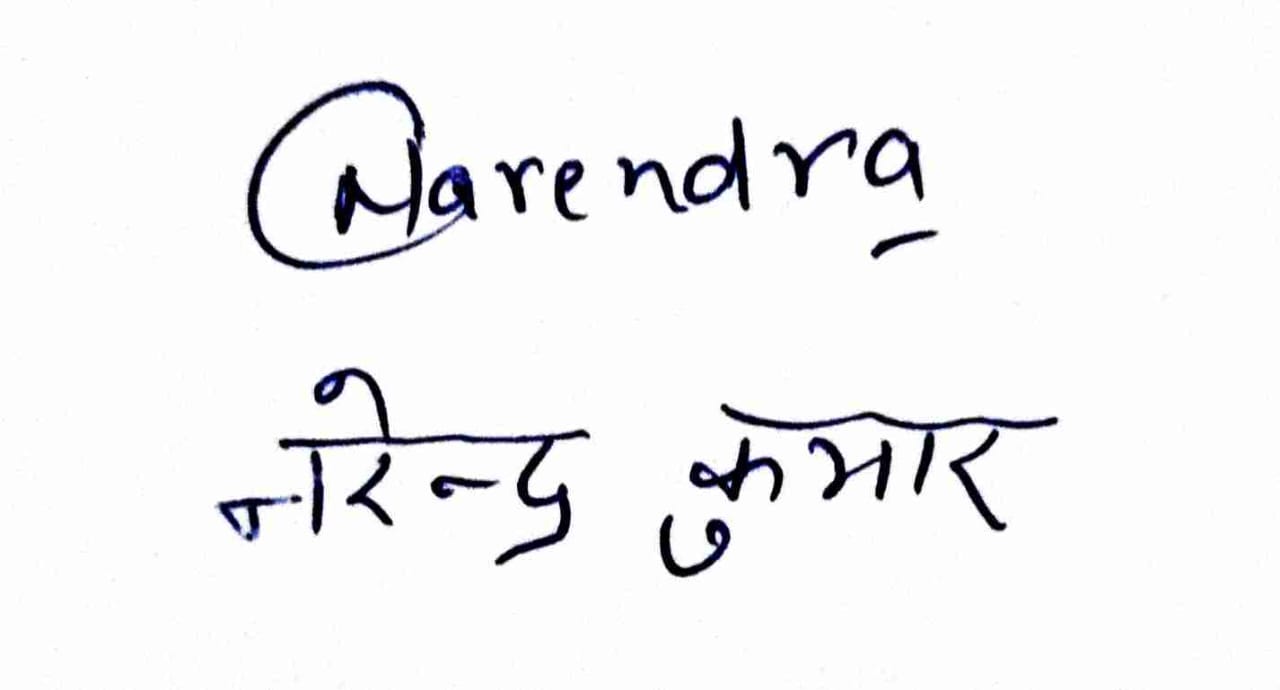 Narendra
नरेन्द्र कुमार